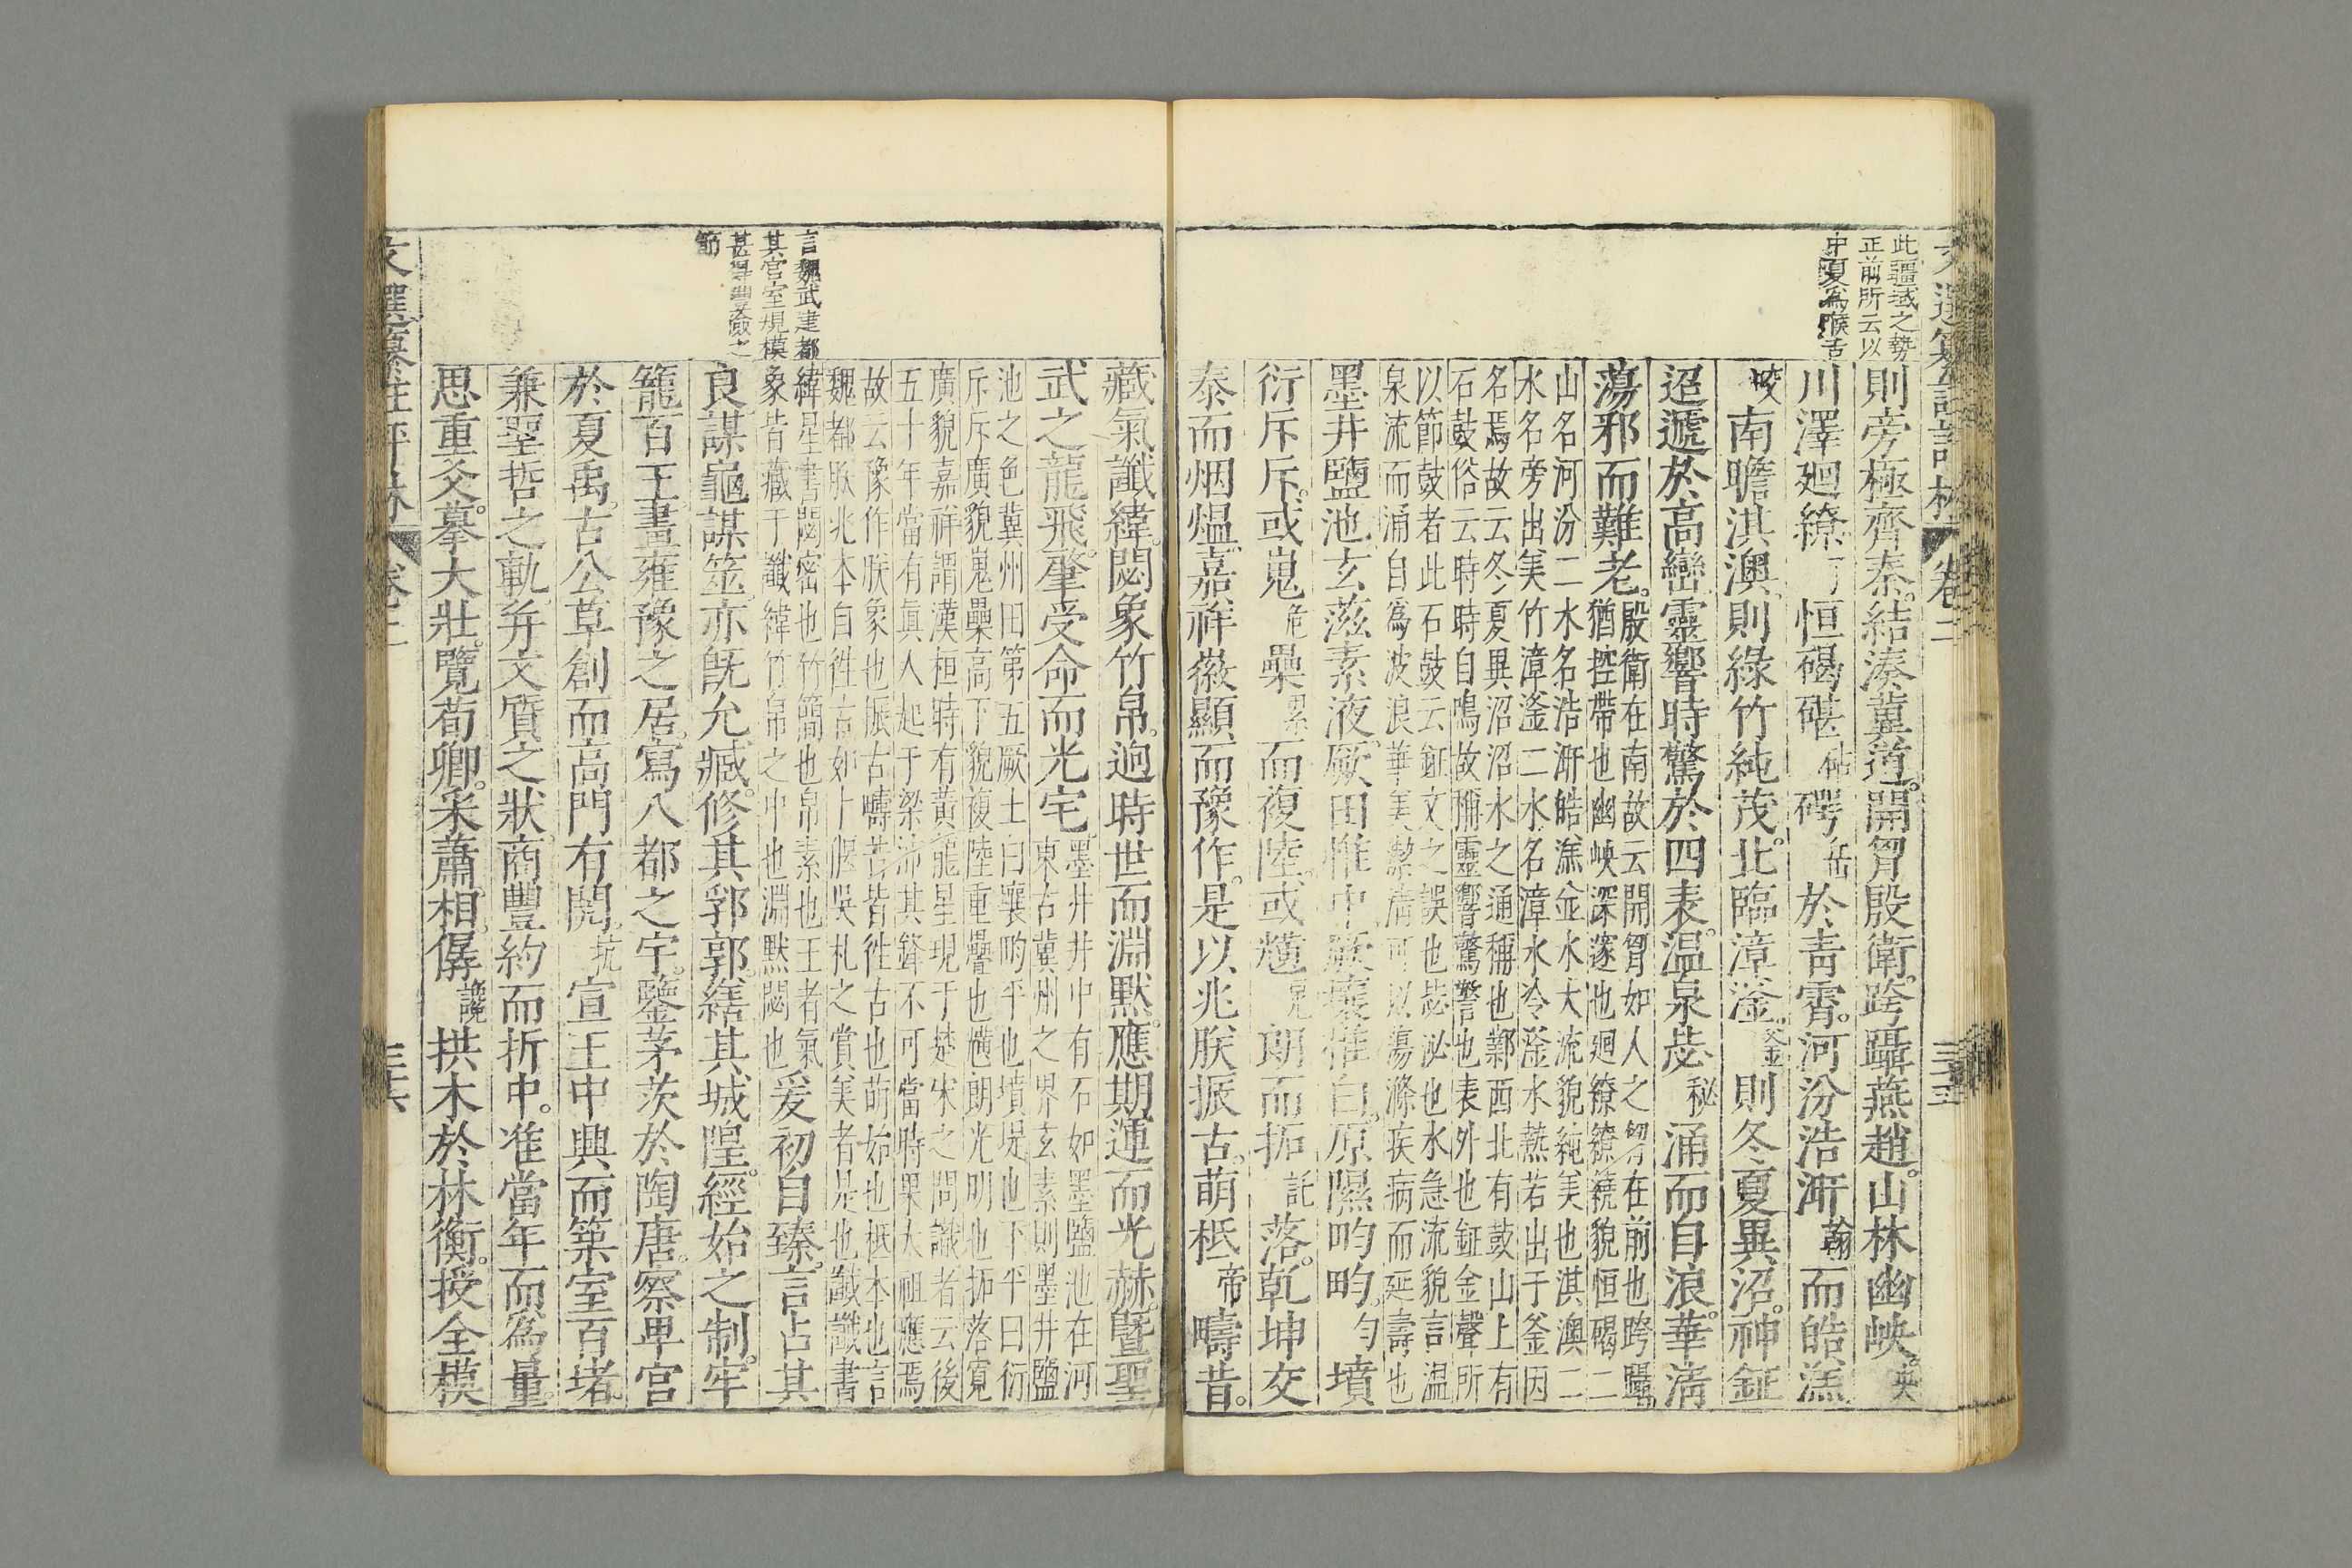 此疆域之勢
正前所云以
中夏爲喉舌
卷二
三十五
則旁極齊秦。結湊冀道。開胷殷衛。跨躡燕趙。山林幽峽。英
川澤廻繚。恒碣碪砧碍岳於青霄。河汾浩汧翰而皓溔
咬南瞻淇澳。則綠竹純茂。北臨漳滏。父金則冬夏異沼。神鉦
迢遞於高巒。靈響時驚於四表。温泉毖秘涌而自浪。華清
蕩邪而難老。殷衛在南故云開胷如人之胷在前也跨躡
猶控帶也幽峽深邃也廻繚繚繞貌恒碣二
山名河汾二水名浩汧皓溔並水大流貌純美也淇澳二
水名旁出美竹漳滏二水名漳水冷滏水熱若出于釜因
名焉故云冬夏異沼沼水之通稱也鄴西北有鼓山上有
石鼓俗云時時自鳴故稱靈響驚警也表外也鉦金聲所
以節鼓者此石鼓云鉦文之誤也毖泌也水急流貌言温
泉流而涌自爲波浪華美潔清可以蕩滌疾病而延壽也
墨井鹽池。玄滋素液。厥田惟中。厥壤惟白。原隰畇畇。勻墳
衍斥斥。或嵬危壘累而複陸。或㦿晃朗而拓託落。乾坤交
泰而烟熅。嘉祥徽顯而豫作。是以兆朕振古。萌柢帝疇昔。
藏氣讖緯。閟象竹帛。逈時世而淵默。應期運而光赫。曁聖
武之龍飛。肇受命而光宅。墨井井中有石如墨鹽池在河
東古冀州之界玄素則墨井鹽
池之色冀州田第五厥土白壤畇平也墳堤也下平曰衍
斥斥廣貌嵬壘高下貌複陸重疊也㦿朗光明也拓落寛
廣貌嘉祥謂漢桓時有黃龍星現于楚宋之間讖者云後
五十年當有眞人起于梁沛其鋒不可當時果太祖應焉
故云豫作朕象也振古疇昔皆徃古也萌始也柢本也言
魏都朕兆本自徃古如卜偃吳札之賞美者是也讖讖書
緯星書閟密也竹簡也帛素也王者氣
象皆藏于讖緯竹帛之中也淵默閟也爰初自臻。言占其
良謀龜謀筮。亦旣允臧。修其郛郭。繕其城隍。經始之制。牢
籠百王。畫雍豫之居。寫八都之宇。鑒茅茨於陶唐。察卑宮
於夏禹。古公草創而高門有閌。抗宣王中興而築室百堵。
兼聖哲之軌。并文質之狀。商豐約而折中。准當年而爲量。
思重爻。摹大壯。覽荀卿。采蕭相。僝譔拱木於林衡。授全模
言魏武建都
其宮室規模
甚得豐儉之
節
文選纂註評林 卷二
三十六